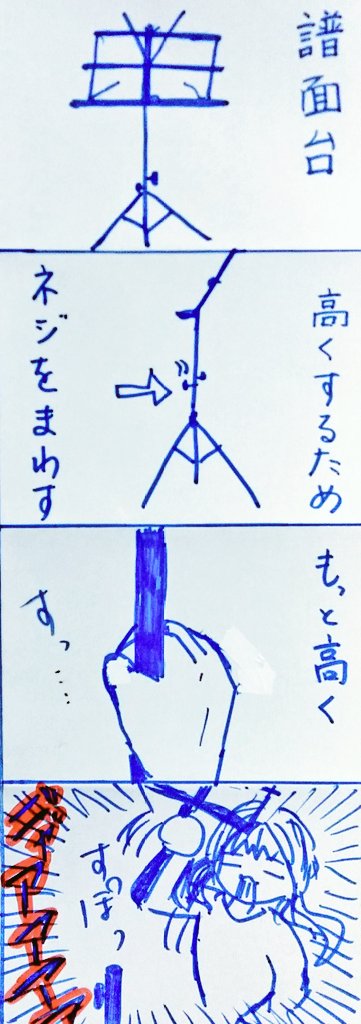 譜面台
高くするため
ネジをまわす
もっと高く
すっ……
すっぽっ
ギャアアアアア